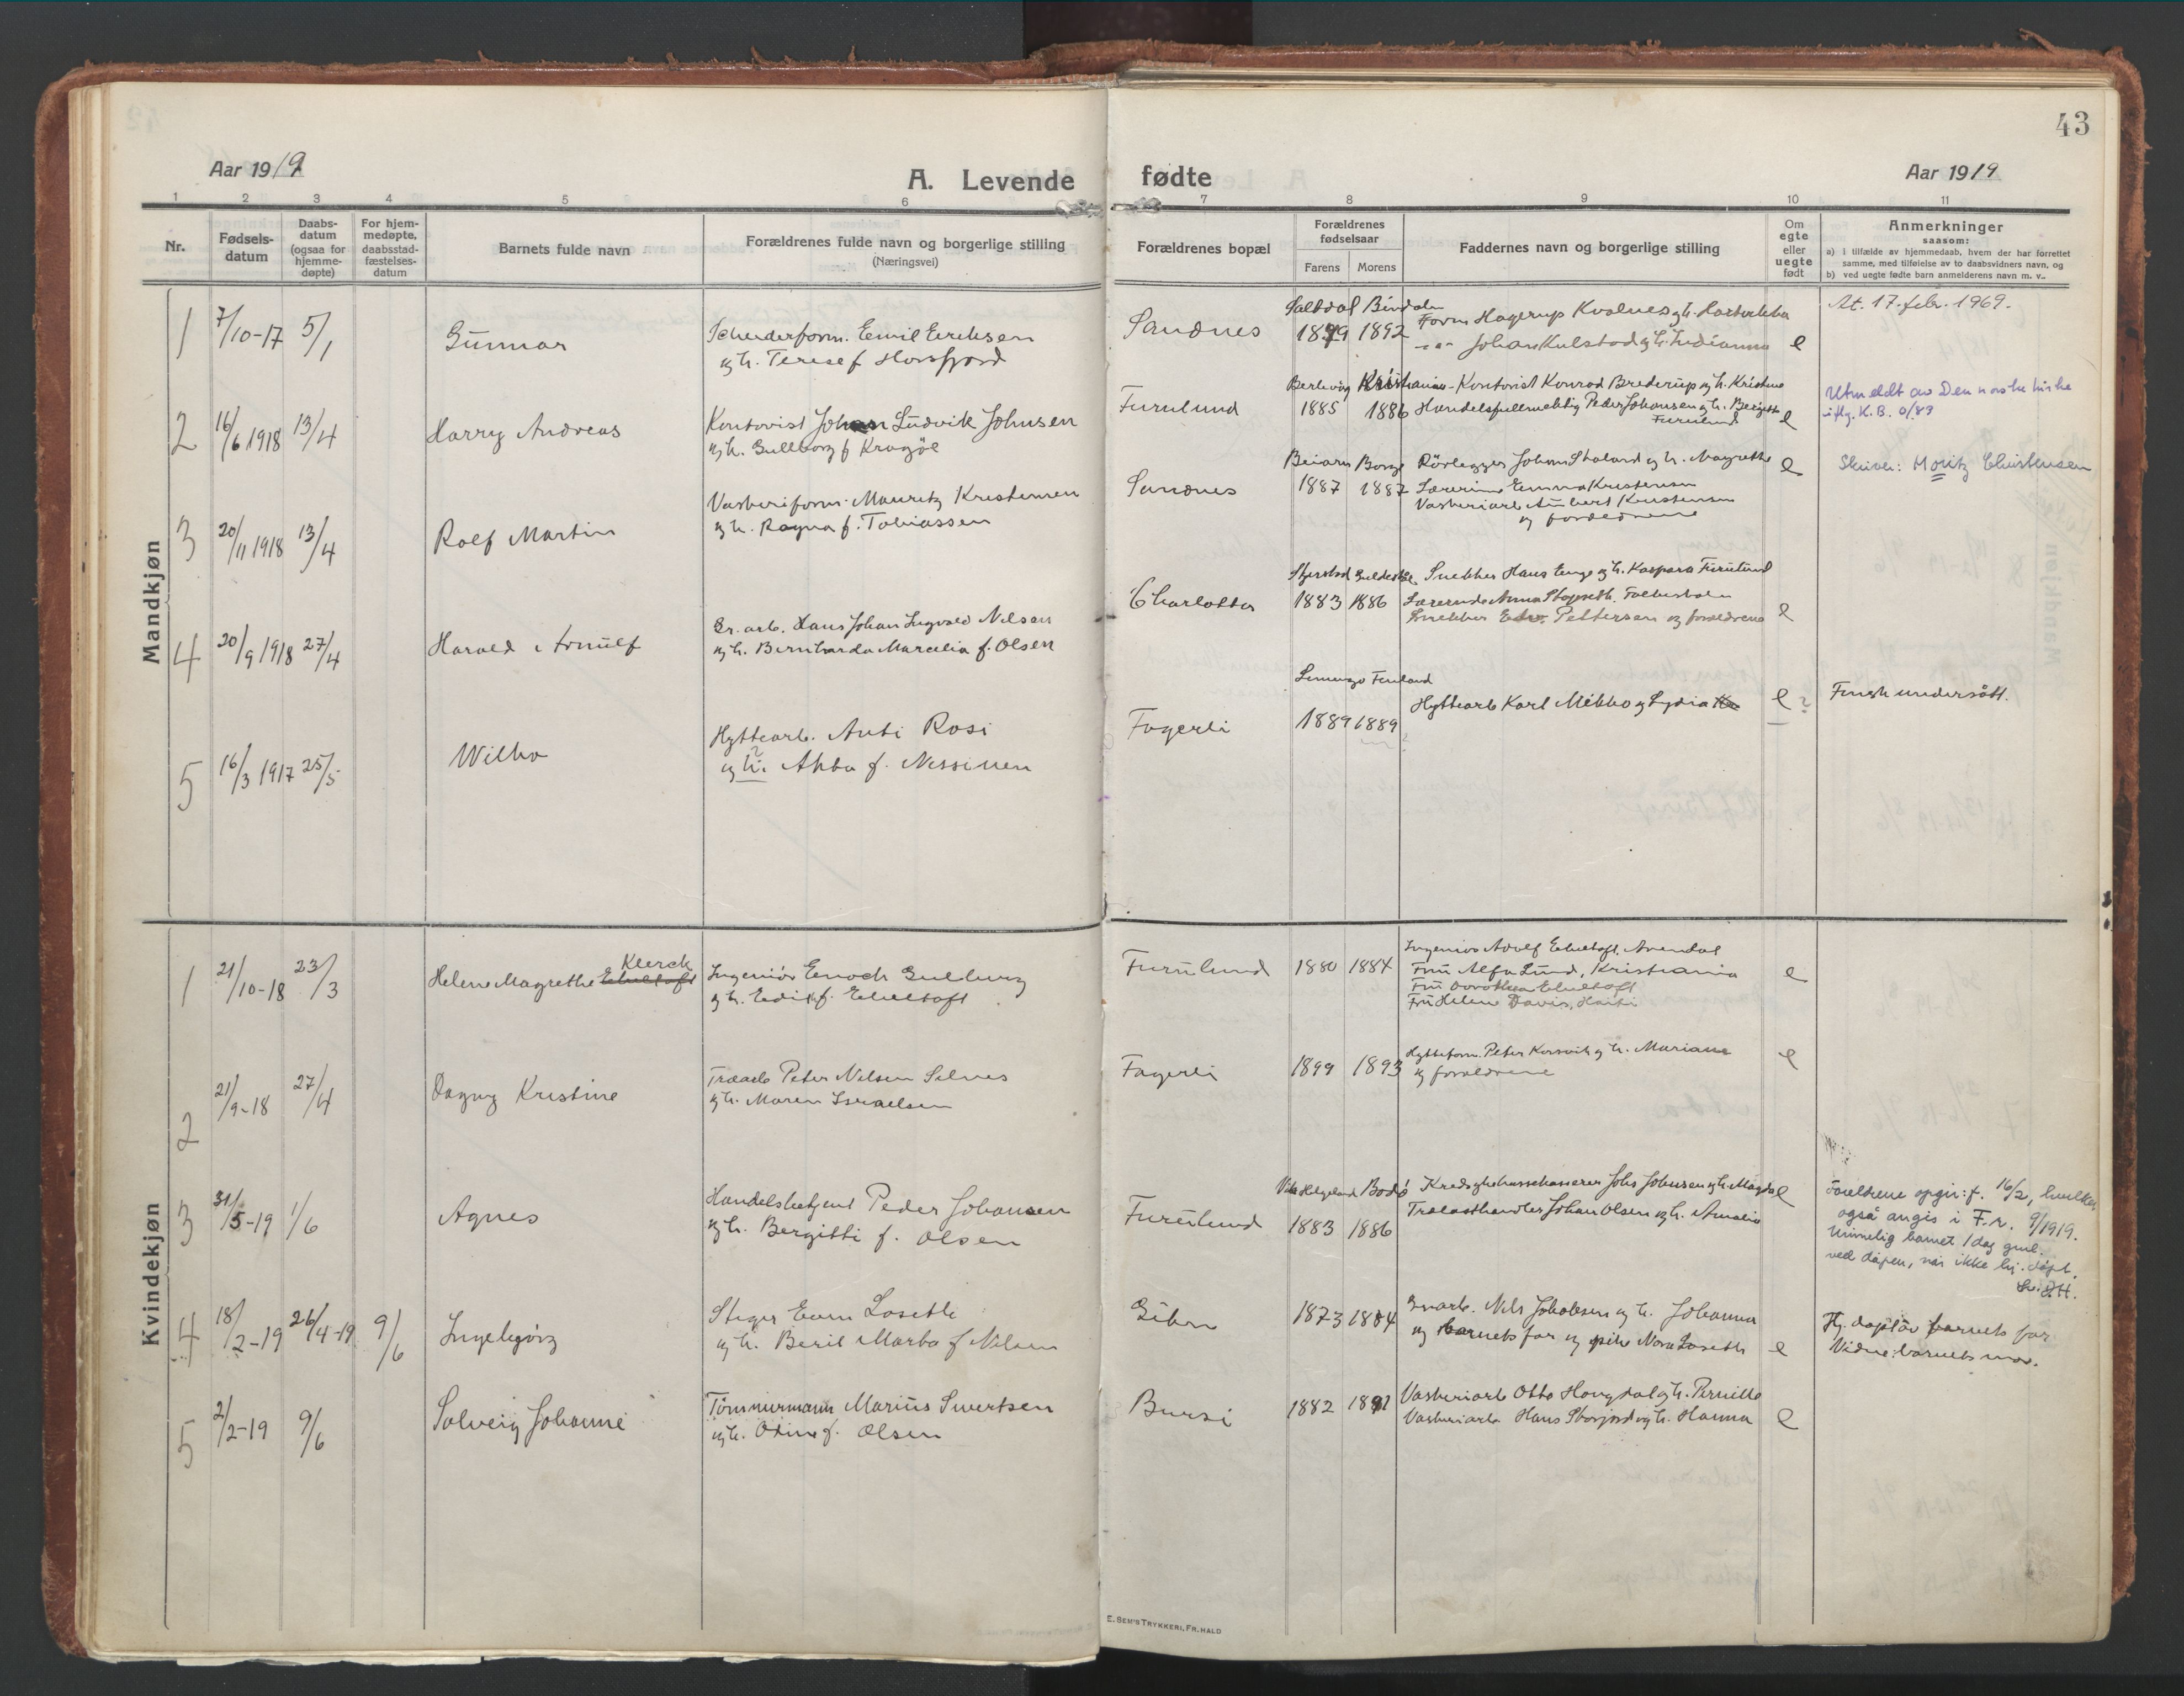 43
Aar 1919
A. Levende fødte
Aar 1919
1 2 3 4 5 6 7 8 9 10 11
Nr.
Fødsels-
datum
Daabs-
datum
(ogsaa for
hjemme-
døpte)
For hjem-
medøpte,
daabsstad-
fæstelses-
datum
Barnets fulde navn
Forældrenes fulde navn og borgerlige stilling
(Næringsvei)
Forældrenes bopæl
Forældrenes
fødselsaar
Farens Morens
Faddernes navn og borgerlige stilling
Om
egte
eller
uegte
født
Anmerkninger
saasom:
a) i tilfælde av hjemmedaab, hvem der har forrettet
samme, med tilføielse av to daabsvidners navn, og
b) ved uegte fødte barn anmelderens navn m. v..
Mandkjøn
1 7/10-17 5/1 Gunnar
Emil Eriksen
og h. Terese f. Horsfjord
Sandnes
Saltdal Bindalen
1879 1892
Form Hagerup Kvalnes og h.
Johan Kulstad og h. Indianna
e
At. 17. febr. 1969.
2 16/6 1918 13/4 Harry Andreas
Kontorist Johan Ludvik Johnsen
og h. Gullborg f. Kragøe
Furulund
Berlevåg Kristiania
1885 1886
Kontorist Konrad Brederup og h. Kristine
Handelsfullmektig Peder Johansen og h. Bergitte
Furulund
e
Utmeldt av Den norske kirke
iflg. K.B. 0/83
3 20/11 1918 13/4 Rolf Martin
Vaskeriform. Mauritz Kristensen
og h. Ragna f. Tobiassen
Sandnes
Beiarn Borge
1887 1887
Rørlegger Johan Staland og h. Magrethe
Lærerinne Emma Kristensen
Vaskeriarb. Aubert Kristensen
og forældrene
e
Skriver: Moritz Christensen
4 20/9 1918 27/4 Harald Arnulf
Gr. arb. Hans Johan Ingvald Nilsen
og h. Bernharda Marcelia f. Olsen
Charlotta
1883 1886
Snekker Hans Enge og h. Kaspara Furulund
Lærerinde Anna
Snekker Edv. Pettersen og forældrene
e
5 16/3 1917 25/5 Wilho
Hyttearb. Anti Rosi
og h. ? Ahba f. Nissinen
Fagerli
Finland
1889 1889
Hyttearb Karl Mikko og Lydia
e ?
Finsk undersått.
Kvindekjøn
1 21/10-18 23/3 Helene Magrethe Ebeltoft Klerck
Ingeniør Enoch Gulburg
og h. Edik f. Ebeltoft
Furulund
1880 1884
Ingeniør Adolf Ebeltoft, Arendal
Fru Alfa Lund, Kristiania
Fru Dorothea Ebeltoft
Fru Helene Davis, Haiti
e
2 21/9-18 27/4 Dagny Kristine
Træarb Peter Nilsen Selnes
og h. Maren Israelsen
Fagerli
1899 1893
Hytteform. Peter Korsvik og h. Mariane
og forældrene
e
3 31/5-19 1/6 Agnes
Handelsbetjent Peder Johansen
og h. Bergitti f. Olsen
Furulund
Helgeland Bodø
1883 1886
Kredsykekassekasserer Johs Johnsen og h. Magda
Trælasthandler Johan Olsen og h. Amalie
e
Foreldrene opgir: f. 16/2, hvilket
også angis i F.r. 9/1919.
Umulig barnet 1 dag gml.
ved dåpen, når ikke hj. døpt.
4 18/2-19 26/4-19 9/6 Ingebjørg
Stiger Loseth
og h. Beril Marta f Nilsen
Giken
1873 1884
Gruarb. Nils Jakobsen og h. Johanna
og barnets far og pike Nora Loseth
e
Hj. døpt av barnets far
Vidne: barnets mor.
5 2/2-19 9/6 Solveig Johanne
Tømmermann Marius Sivertsen
og h. Odine f. Olsen
Bursi
1882 1892
Vaskeriarb Otto Haugdal og h. Pernille
Vaskeriarb Hans Storjord og h. Hanna
e
E. SEM'S TRYKKERI, FR. HALD